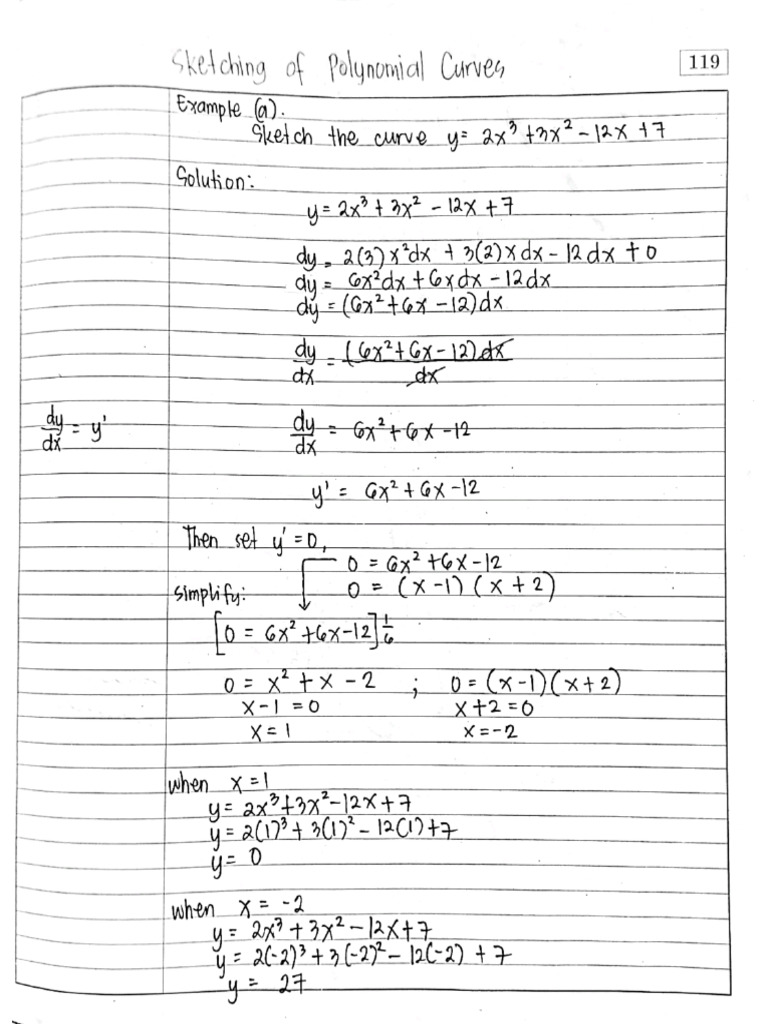 Sketching of Polynomial Curves
119
Example (a).
Sketch the curve y = 2x³ + 3x² - 12x + 7
Solution:
y = 2x³ + 3x² - 12x + 7
dy = 2(3)x²dx + 3(2)x dx - 12dx + 0
dy = 6x²dx + 6xdx - 12dx
dy = (6x² + 6x - 12)dx
dy/dx = (6x² + 6x - 12)dx/dx
dy/dx = y'
dy/dx = 6x² + 6x - 12
y' = 6x² + 6x - 12
Then set y' = 0,
0 = 6x² + 6x - 12
simplify:
0 = (x - 1)(x + 2)
[0 = 6x² + 6x - 12] 1/6
0 = x² + x - 2 ; 0 = (x - 1)(x + 2)
x - 1 = 0 x + 2 = 0
x = 1 x = -2
when x = 1
y = 2x³ + 3x² - 12x + 7
y = 2(1)³ + 3(1)² - 12(1) + 7
y = 0
when x = -2
y = 2x³ + 3x² - 12x + 7
y = 2(-2)³ + 3(-2)² - 12(-2) + 7
y = 27